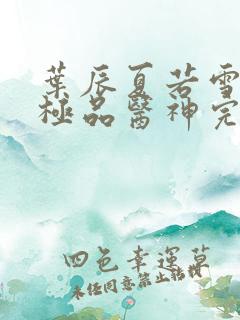 葉辰夏若雪
極品醫神完
四色幸運草
未經同意禁止轉載